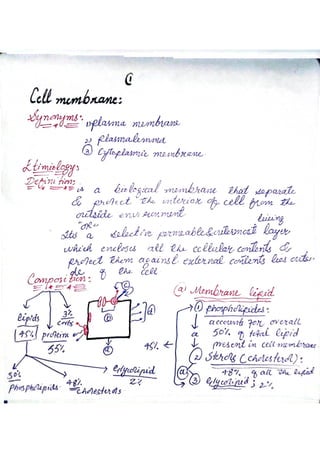 ①
Cell membrane:
Synonyms: 1) plasma membrane
2) plasmalemma
③ Cytoplasmic membrane
Etimiology:
Definition:
is a biological membrane that separate
& protect the interior of cell from the
outside environment
"OR"
living
Its a selective permeable & outermost layer
which encloses all the cellular contents &
protect them against external contents lies outer
of the cell
Composition:
lipids
45%
protein
55%
3%
50%
phospholipids
48%
cholesterols
Glycolipid
2%
(a) Membrane lipid
45%
① phospholipides:
accounts for overall
a 50% of total lipid
present in cell membrane
② Strols (cholesterol):
48% of all the lipid
③ Glycolipid: 2%.